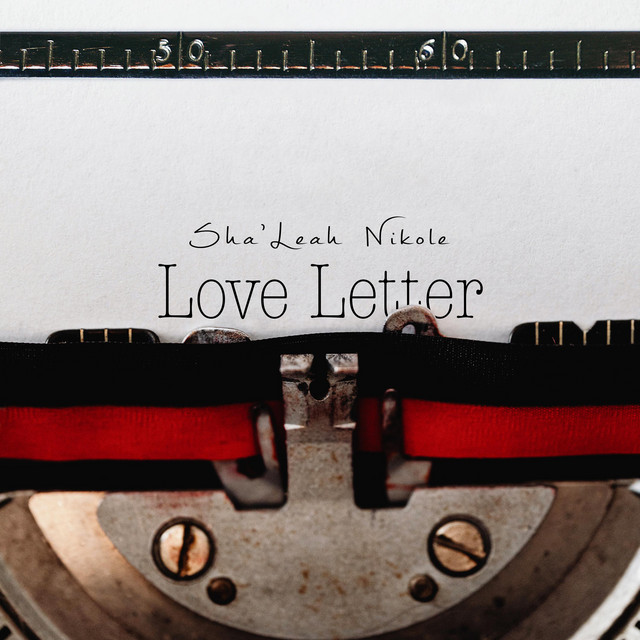 50 60
Sha'Leah Nikole
Love Letter